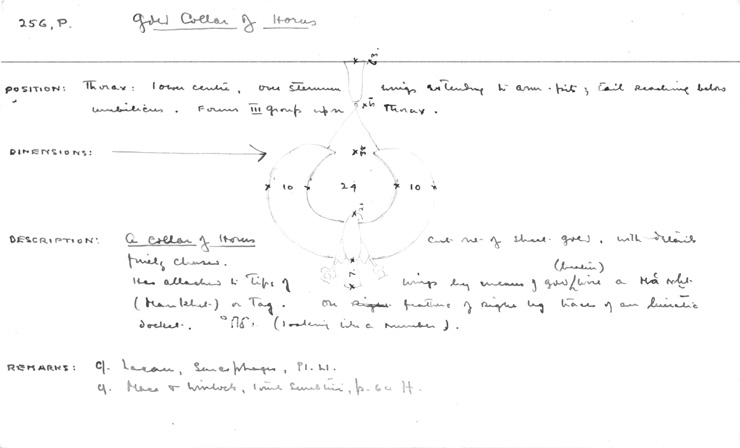 256, P. Gold Collar of Horus
POSITION: Thorax: lower centre, over sternum wings extending to arm-pits; tail reaching below
umbilicus. Forms III group upon Thorax.
DIMENSIONS:
10 24 10
DESCRIPTION: A collar of Horus cut out of sheet gold, with details
finely chased. (beaten)
Has attached to tips of wings by means of gold wire a
(Mankhet) or Tag. On feature of right leg trace of an hieratic
docket. (looking like a number).
REMARKS: cf. Lacau, Sarcophages, Pl. LI.
cf. Mace & Winlock, Tomb Senebtisi, p. 64 ff.